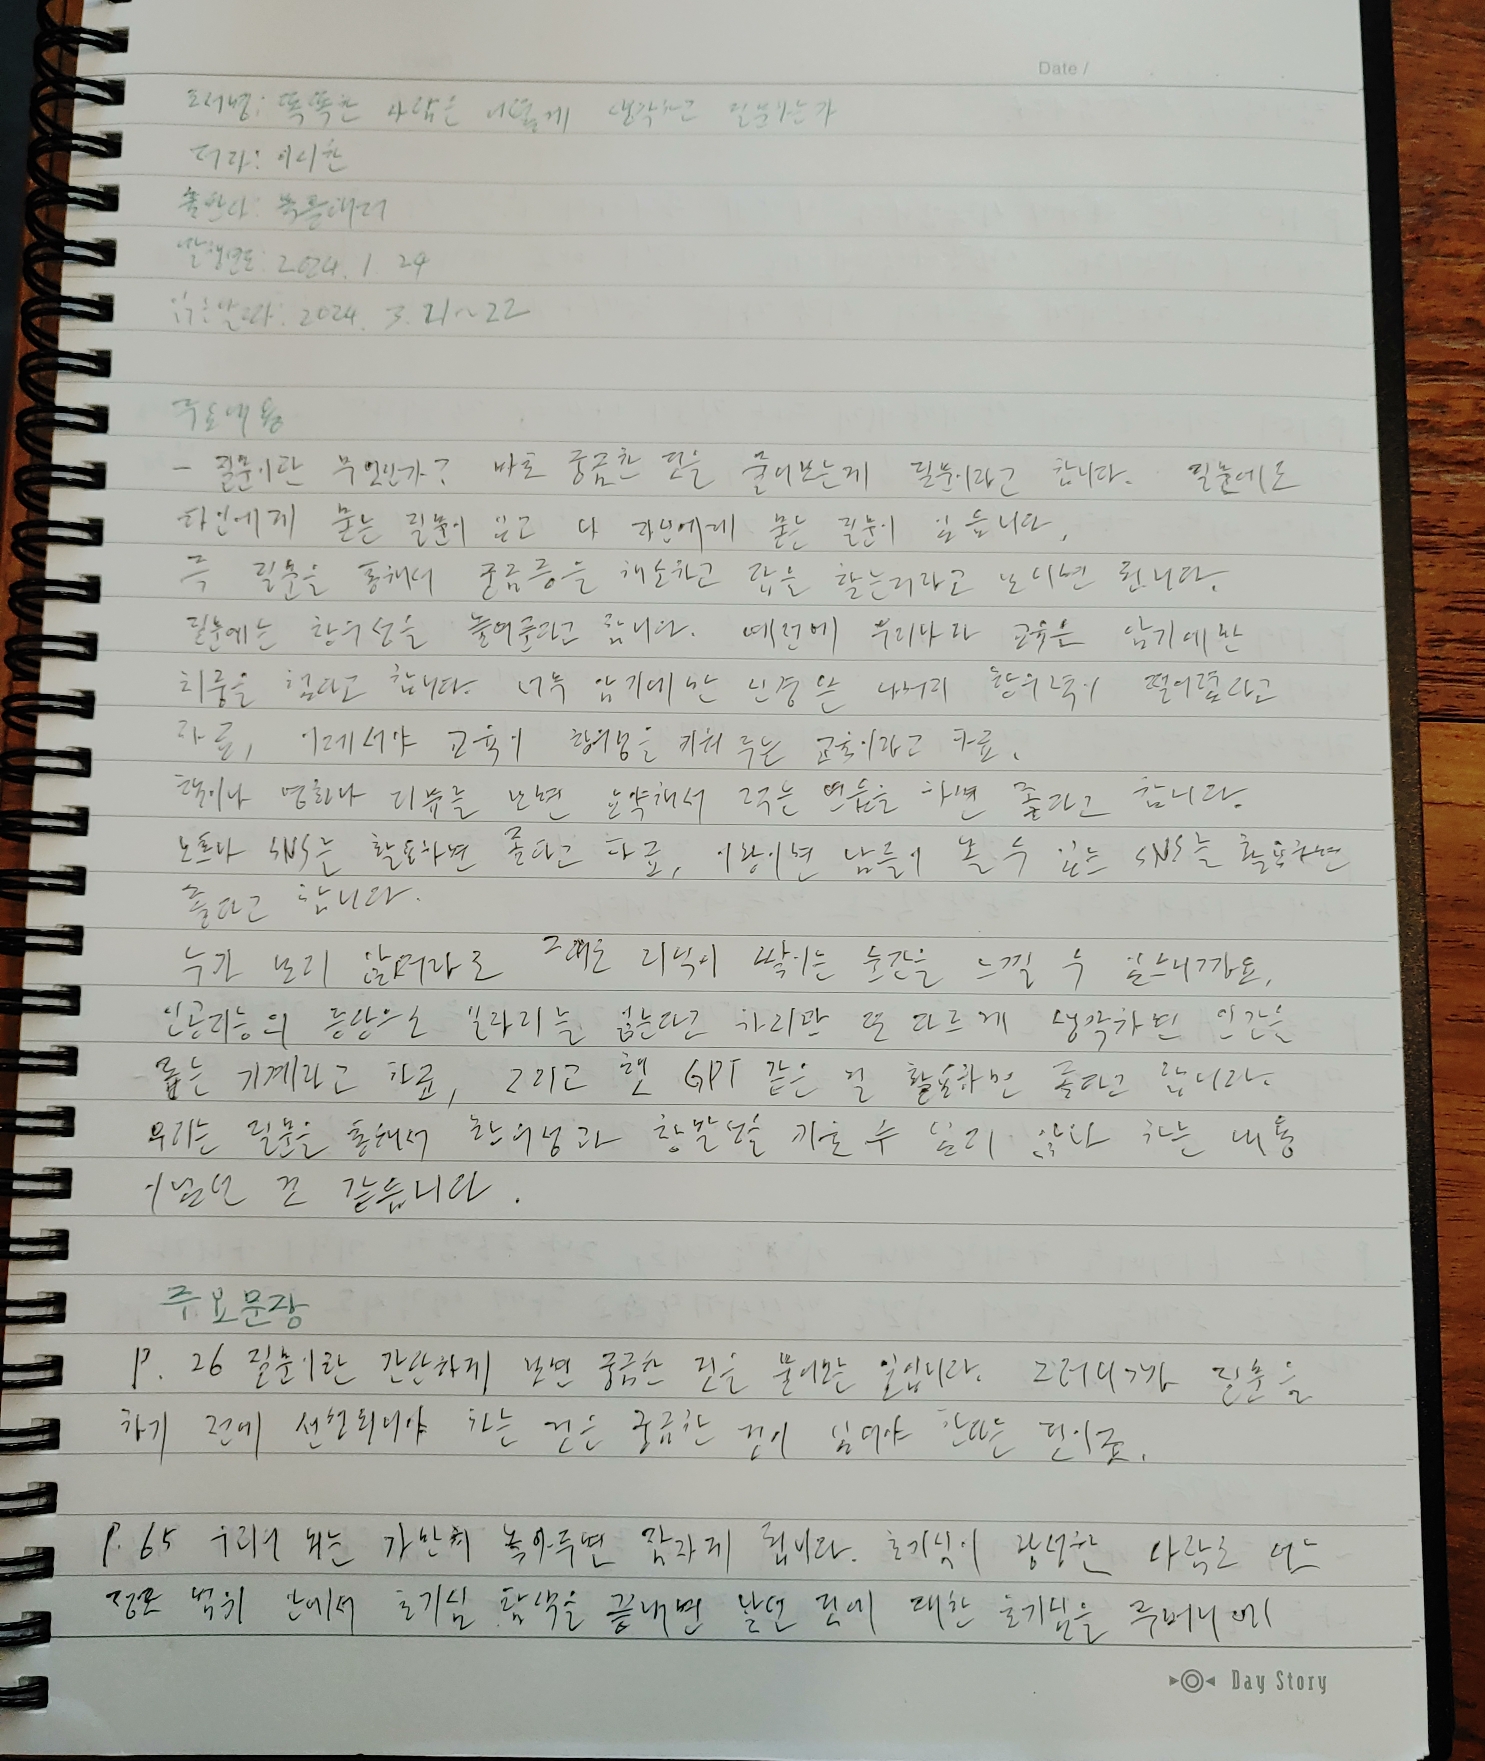 Date /
도서명: 똑똑한 사람은 어떻게 생각하고 질문하는가
저자: 이시한
출판사: 북플레저
발행연도: 2024. 1. 24
읽은날짜: 2024. 3. 21~22
주요내용
- 질문이란 무엇인가? 바로 궁금한 것을 물어보는게 질문이라고 합니다. 질문에도
타인에게 묻는 질문이 있고 나 자신에게 묻는 질문이 있습니다.
즉 질문을 통해서 궁금증을 해소하고 답을 찾는거라고 보시면 됩니다.
질문에는 창의성을 높여준다고 합니다. 예전에 우리나라 교육은 암기에만
치중을 했다고 합니다. 너무 암기에만 신경 쓴 나머지 창의력이 떨어졌다고
하죠, 이제서야 교육이 창의성을 키워 주는 교육이라고 하죠.
책이나 영화나 리뷰를 보면 요약해서 적는 연습을 하면 좋다고 합니다.
노트나 SNS를 활용하면 좋다고 하죠, 이왕이면 남들이 볼 수 있는 SNS를 활용하면
좋다고 합니다.
누가 보지 않더라도 그래도 지식이 쌓이는 순간을 느낄 수 있으니까요.
인공지능의 등장으로 일자리를 잃는다고 하지만 또 다르게 생각하면 인간을
돕는 기계라고 하죠, 그리고 챗 GPT 같은 걸 활용하면 좋다고 합니다.
우리는 질문을 통해서 창의성과 창발성을 키울 수 있지 않나 하는 내용
이었던 것 같습니다.
주요문장
P. 26 질문이란 간단하게 보면 궁금한 것을 물어보는 일입니다. 그러니까 질문을
하기 전에 선행되어야 하는 것은 궁금한 것이 있어야 한다는 것이죠.
P. 65 우리의 뇌는 가만히 놓아두면 잠자게 됩니다. 호기심이 왕성한 사람도 어느
정도 범위 안에서 호기심 탐색을 끝내면 낯선 것에 대한 호기심을 주머니에
Day Story